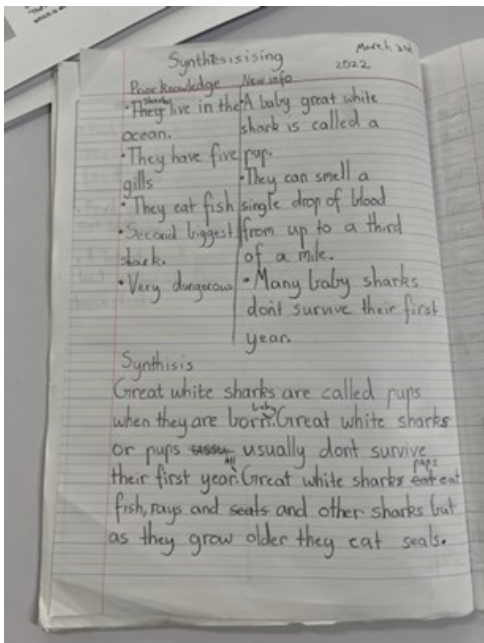 which is al
Synthesisising
March 3rd
2022
Prior knowledge New info
• They sharks live in the
ocean.
• They have five
gills
• They eat fish
• Second biggest
shark.
• Very dangerous
• A baby great white
shark is called a
pup.
• They can smell a
single drop of blood
from up to a third
of a mile.
• Many baby sharks
dont survive their first
year.
Synthisis
Great white sharks are called pups
when they are born. baby Great white sharks
or pups usually dont survive
their first year. All Great white sharks pups eat eat
fish, rays and seals and other sharks but
as they grow older they eat seals.